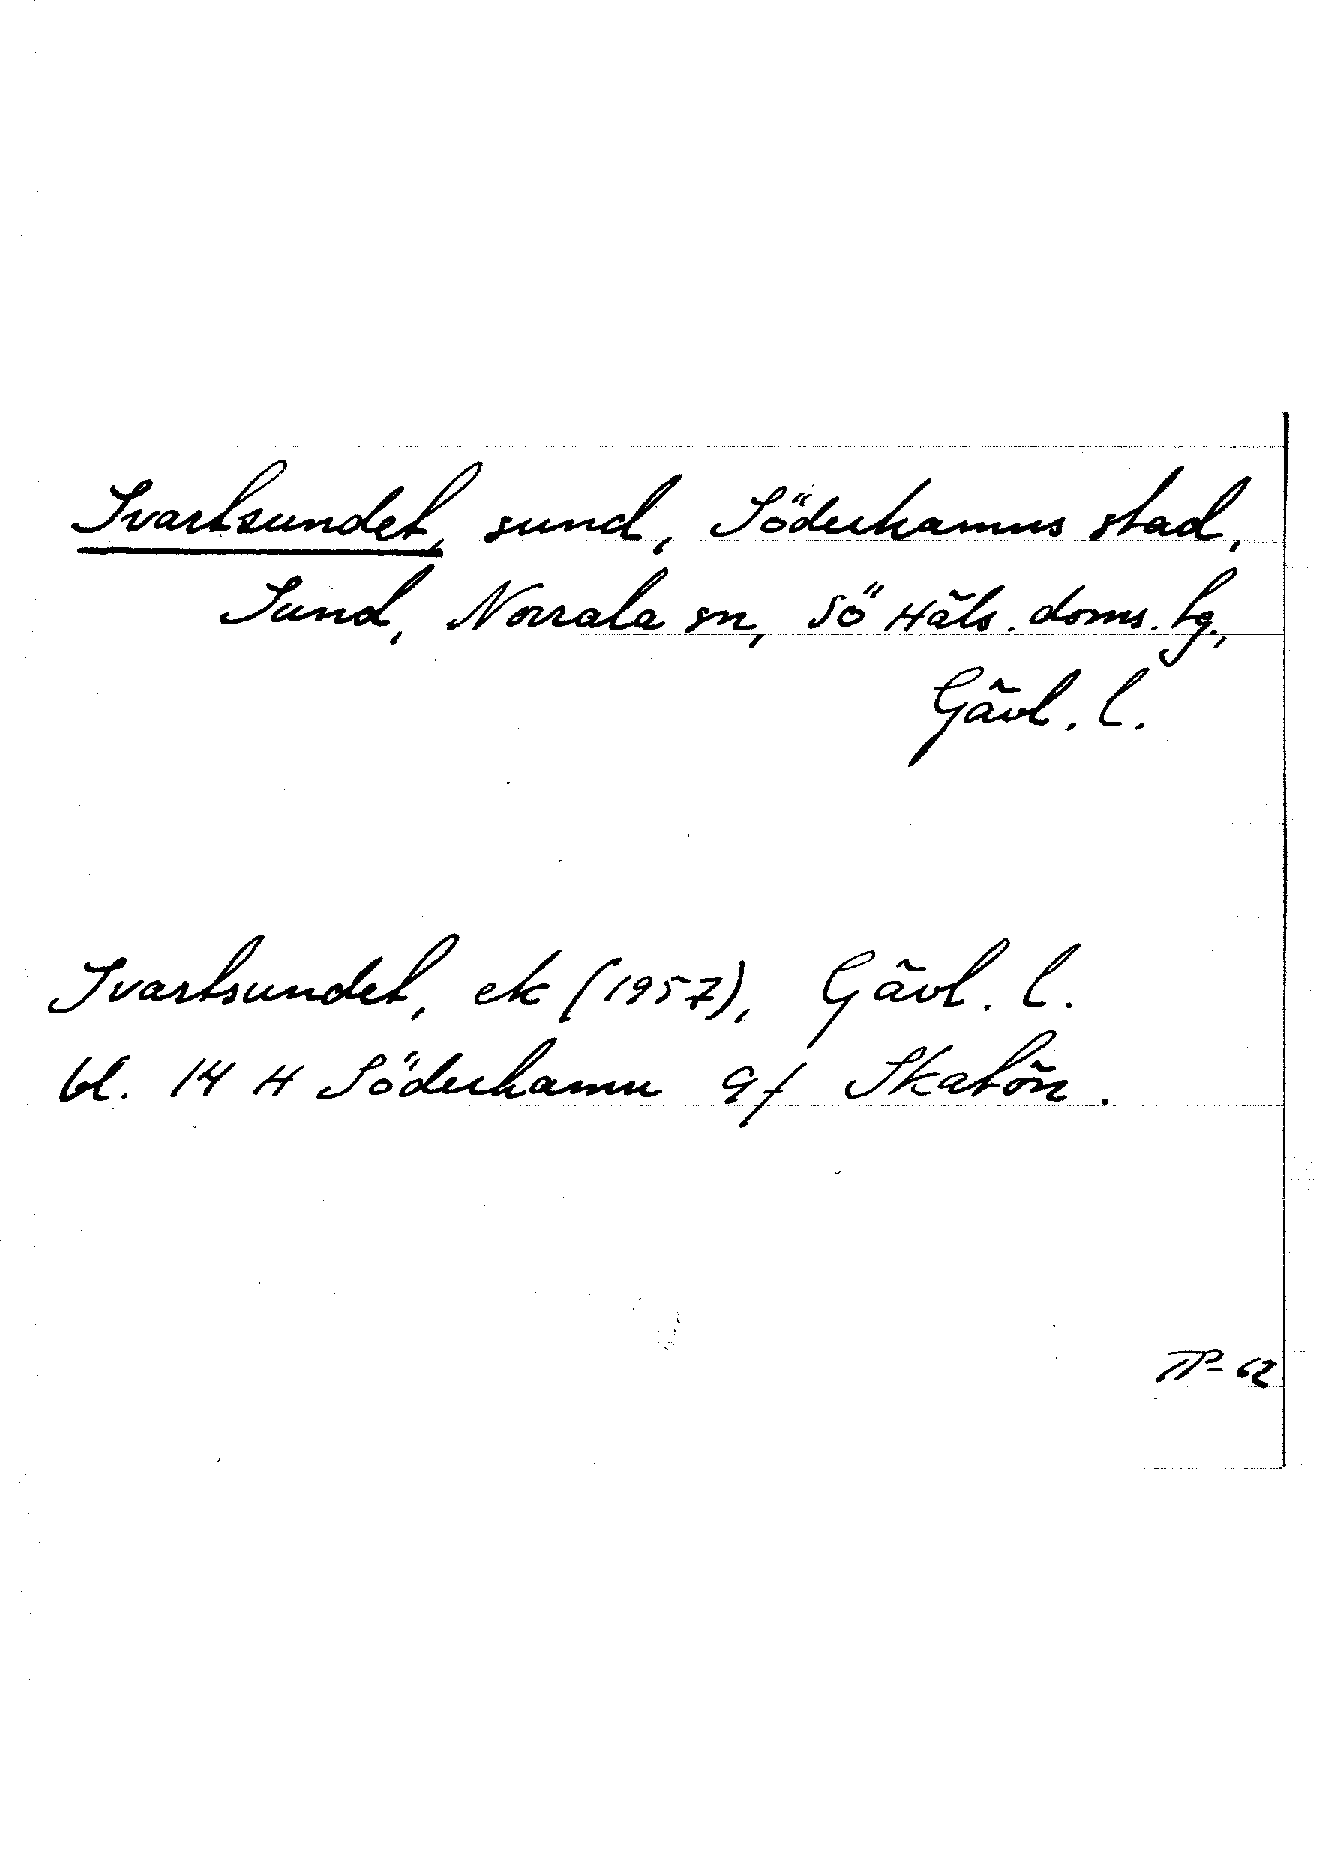 Svartsundet, sund, Söderhamns stad,
Sund, Norrala sn, Sö Häls. doms. lg.,
Gävl. l.
Svartsundet, ek (1957), Gävl. l.
bl. 14 H Söderhamn 9f Skatön.
-62